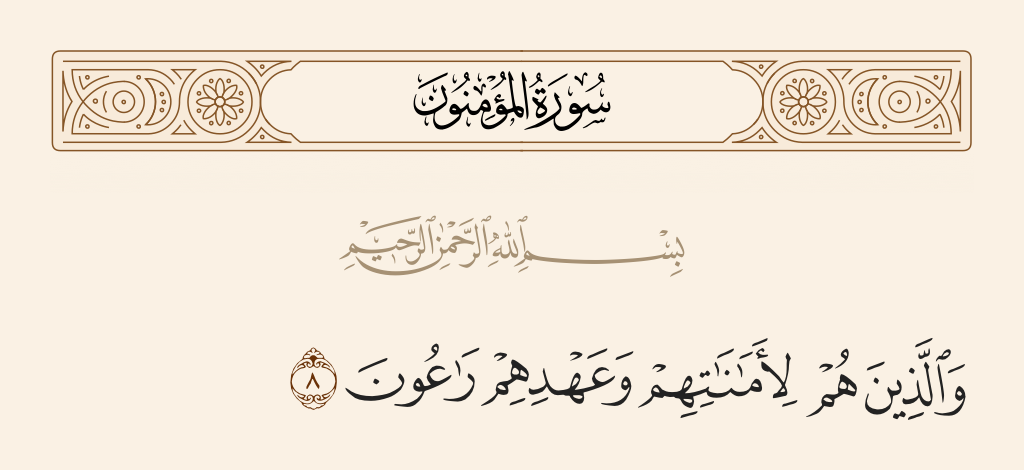 سُورَةُ الْمُؤْمِنُونَ
بِسْمِ ٱللَّهِ ٱلرَّحْمَٰنِ ٱلرَّحِيمِ
وَٱلَّذِينَ هُمْ لِأَمَٰنَٰتِهِمْ وَعَهْدِهِمْ رَٰعُونَ ٨